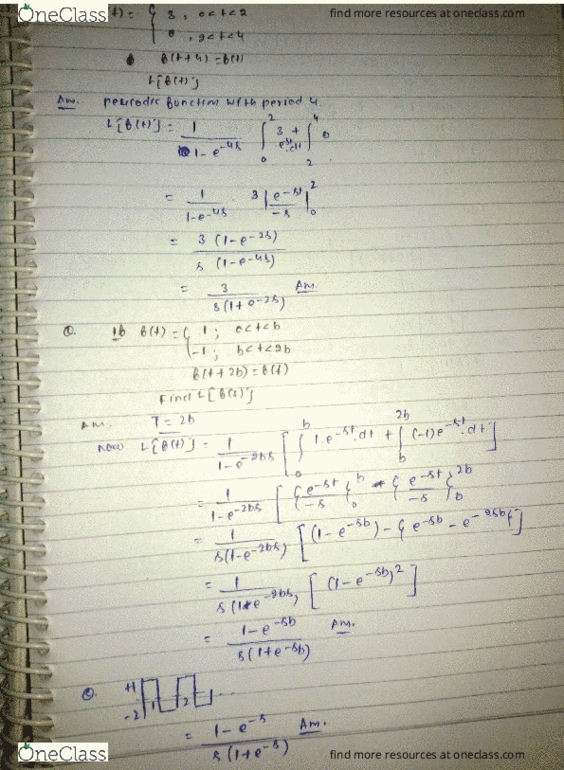 OneClass
find more resources at oneclass.com
t) = { 3 , 0<t<2
0 , 2<t<4
f(t+4) = f(t)
L{f(t)}
Am. periodic function with period 4.
L{f(t)} = 1/(1-e^-4s) ∫_0^2 3 e^-st.dt + ∫_2^4 0
= 1/(1-e^-4s) . 3 |e^-st/-s|_0^2
= 3 (1-e^-2s) / s (1-e^-4s)
= 3 / s(1+e^-2s) Am.
Q. If f(t) = { 1 ; 0<t<b
-1 ; b<t<2b
f(t+2b) = f(t)
Find L[f(t)]
Am. T = 2b
Now L{f(t)} = 1/(1-e^-2bs) [ ∫_0^b 1.e^-st.dt + ∫_b^2b (-1)e^-st.dt ]
= 1/(1-e^-2bs) [ {e^-st/-s}_0^b - {e^-st/-s}_b^2b
= 1/s(1-e^-2bs) [ (1-e^-sb) - {e^-sb - e^-2sb} ]
= 1/s(1-e^-2bs) [ (1-e^-sb)^2 ]
= 1-e^-sb / s(1+e^-sb) Am.
Q. +1
-2 1 2 ...
= 1-e^-s / s(1+e^-s) Am.
OneClass
find more resources at oneclass.com